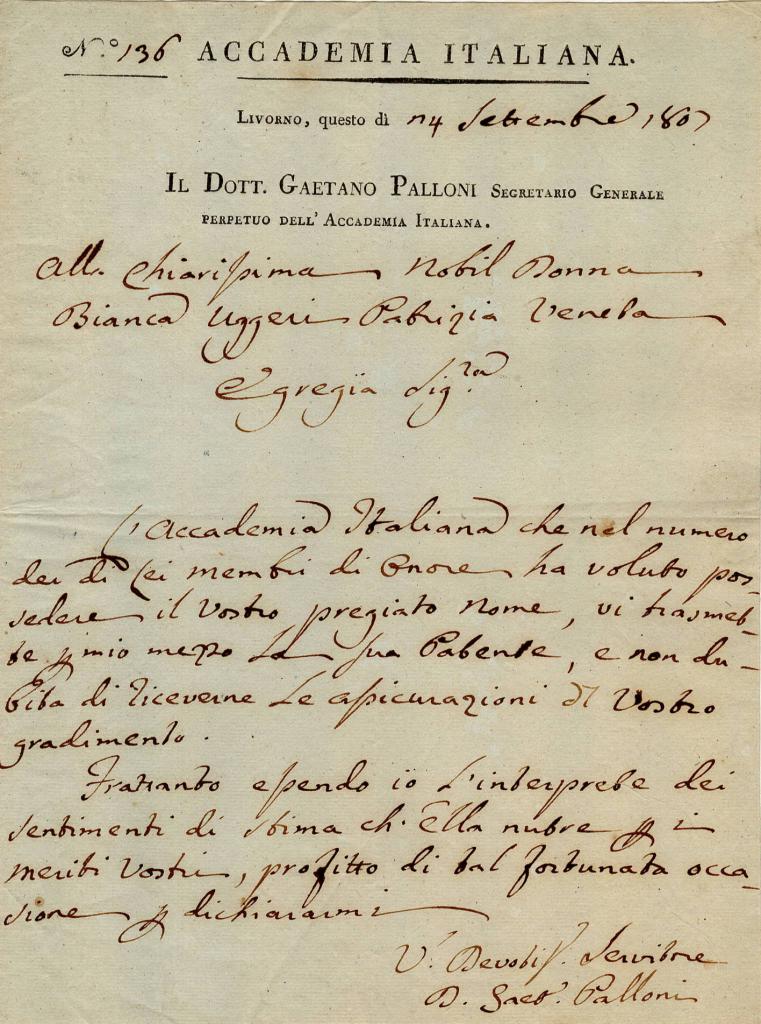 N.º 136 ACCADEMIA ITALIANA.
LIVORNO, questo dì 14 Settembre 1807
IL DOTT. GAETANO PALLONI SEGRETARIO GENERALE
PERPETUO DELL' ACCADEMIA ITALIANA.
Alla Chiarissima Nobil Donna
Bianca Uggeri Patrizia Veneta
Egregia Sig.ra
L'Accademia Italiana che nel numero
dei di Lei membri di Onore ha voluto pos-
sedere il Vostro pregiato Nome, vi trasmet-
te p mio mezzo La sua Patente, e non du-
bita di riceverne Le assicurazioni di Vostro
gradimento.
Frattanto essendo io L'interprete dei
sentimenti di stima ch' Ella nutre p i
meriti Vostri, profitto di tal fortunata occa-
sione p dichiararmi
V. Devotiss. Servitore
D. Gaet. Palloni